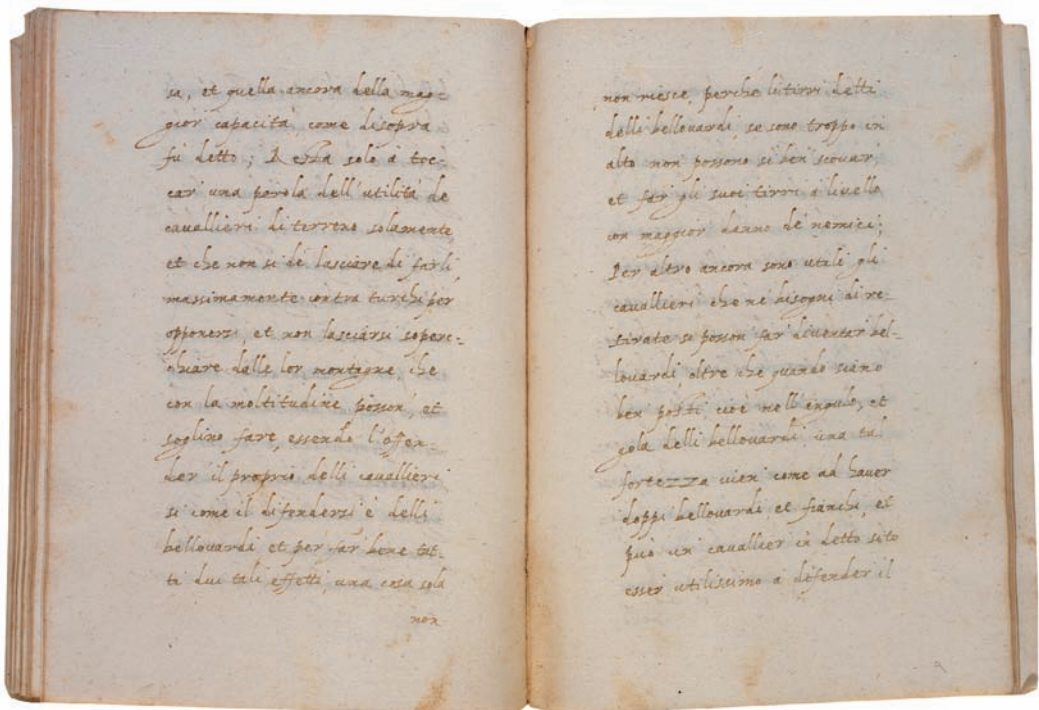 sa, et quella ancora della mag-
gior capacità come disopra
fù detto; Resta solo à toc-
car una parola dell'utilità de
cavallieri di terreno solamente,
et che non si dè lasciare di farli,
massimamente contra turchi per
opponersi, et non lasciarsi soperc-
chiare dalle lor montagne, che
con la moltitudine posson', et
soglino fare, essendo l'offen-
der il proprio delli cavallieri
si come il difendersi è delli
bellouardi et per far bene tut-
ti dui tali effetti, una cosa sola
non
non riesce, perche li tirri detti
delli bellouardi, se sono troppo in
alto non possono si ben' scouar,
et far gli suoi tirri à livello
con maggior danno de nemici;
Per altro ancora sono utili gli
cavallieri che ne bisogni di re-
tirate se posson far' diventar bel-
louardi, oltre che quando siano
ben posti cioè nell'angulo, et
gola delli bellouardi una tal
fortezza vien' come ad haver
doppi bellouardi et fianchi, et
può un cavallier in detto sito
esser utilissimo a difender il